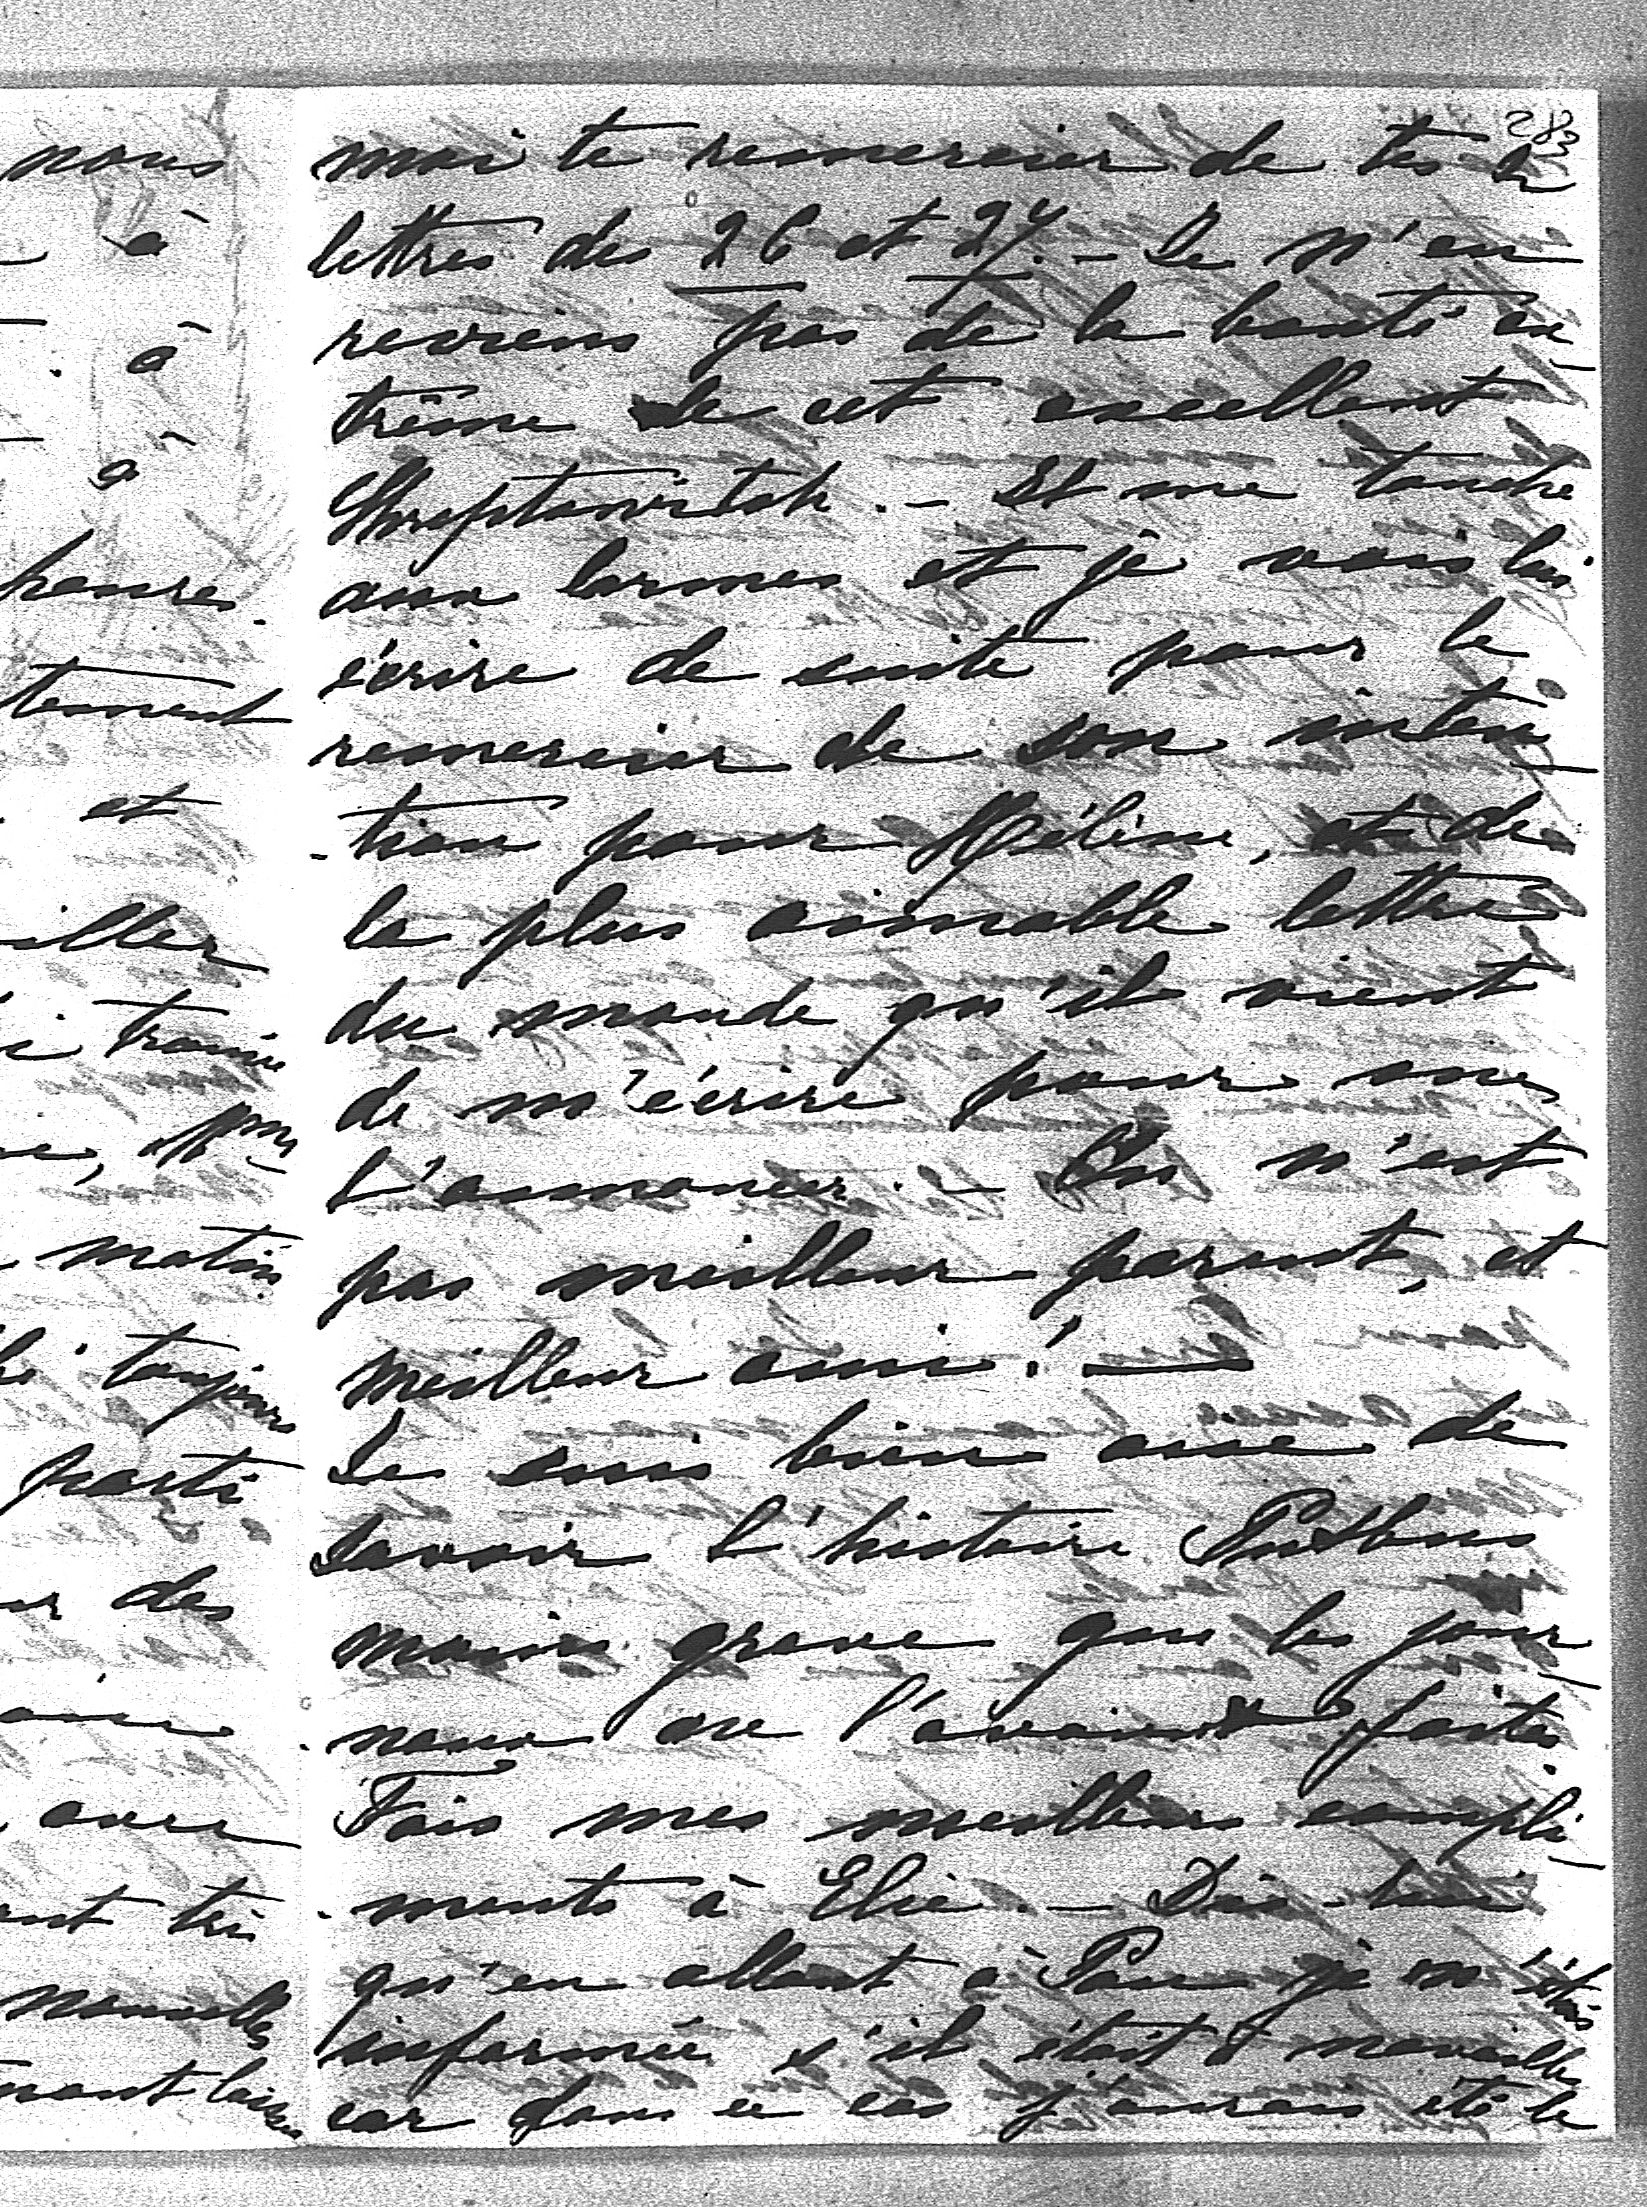 283
moi te remercier de tes 2
lettres des 26 et 27. – Je n'en
reviens pas de la bonté ex
trême de cet excellent
– Et me touche
aux larmes et je vais lui
écrire de suite pour le
remercier de son inten
-tion pour Hélène, et de
la plus aimable lettre
du monde qu'il vient
de m'écrire pour me
l'annoncer. – On n'est
pas meilleur parent, et
meilleur ami! –
Je suis bien aise de
savoir l'histoire Putbus
moins grave que les jour
-naux ne l'avaient faite.
Fais mes meilleurs compli
-ments à Elie. – Dis-lui
qu'en allant à Pau je m'étais
informée s'il était à Navailles
car dans ce cas j'aurais été le
nous
à
à
à
tement
et
matin
toujours
parti
des
avec
nouvelles